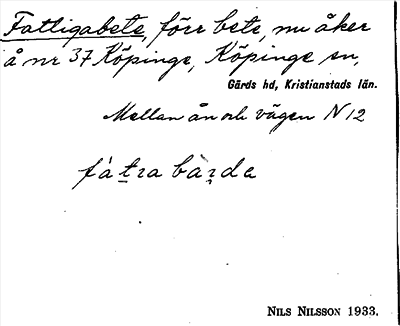 Fattigabete, förr bete, nu åker
å nr 37 Köpinge, Köpinge sn,
Gärds hd, Kristianstads län.
Mellan ån och vägen N 12
fàtra bàrda
NILS NILSSON 1933.